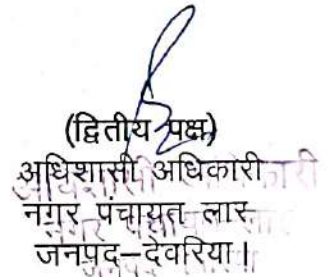 (द्वितीय पक्ष)
अधिशासी अधिकारी
नगर पंचायत लार
जनपद–देवरिया।